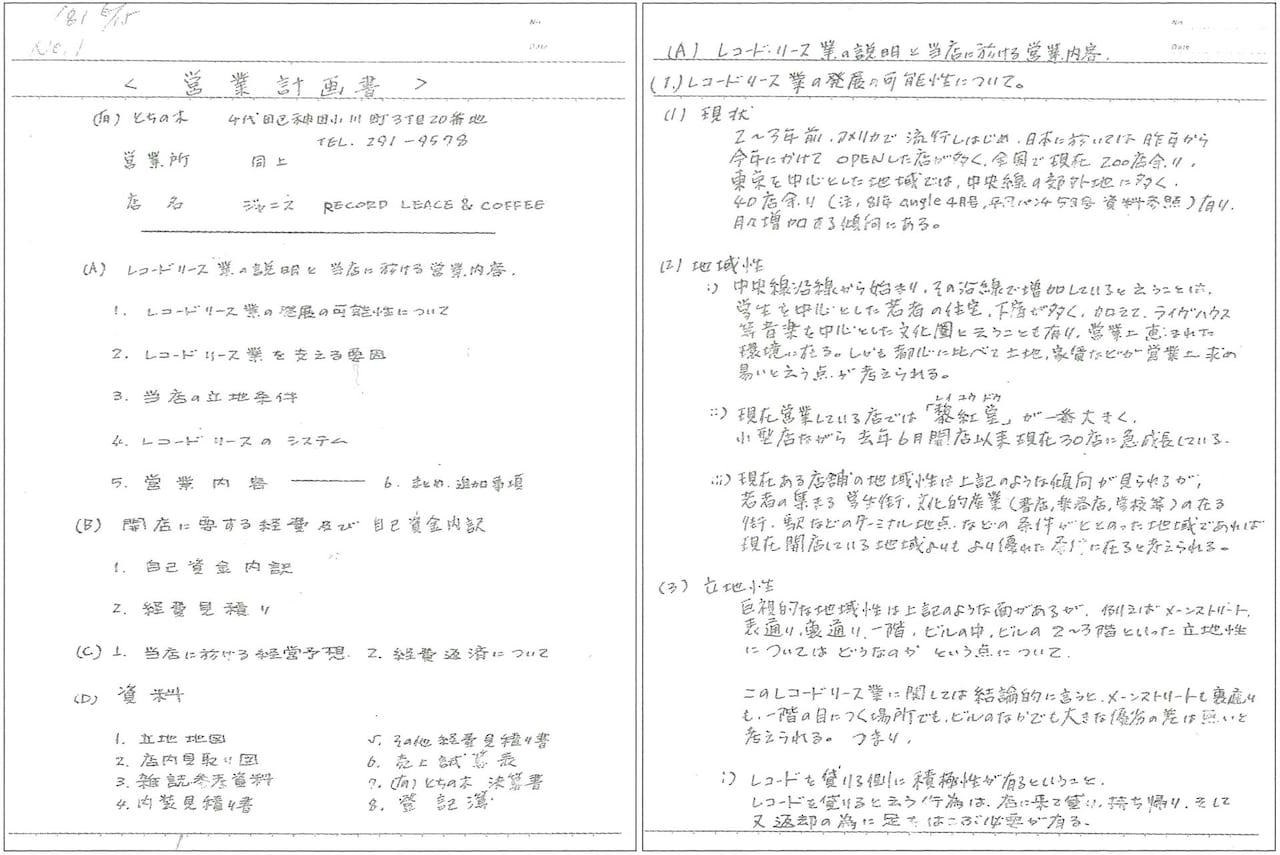 '81 6/15
No. 1
No.
Date
< 営業計画書 >
(有) とちの木 千代田区神田小川町3丁目20番地
TEL. 291-9578
営業所 同上
店名 ジャニス RECORD LEACE & COFFEE
(A) レコードリース業の説明と当店に於ける営業内容.
1. レコードリース業の発展の可能性について
2. レコードリース業を支える要因
3. 当店の立地条件
4. レコードリースのシステム
5. 営業内容 ——— 6. まとめ.追加事項
(B) 開店に要する経費及び自己資金内訳
1. 自己資金内訳
2. 経費見積り
(C) 1. 当店に於ける経営予想 2. 経費返済について
(D) 資料
1. 立地地図
2. 店内見取り図
3. 雑誌参考資料
4. 内装見積り書
5. その他経費見積り書
6. 売上試算表
7. (有)とちの木 決算書
8. 登記簿
No.
Date
(A) レコード・リース業の説明と当店に於ける営業内容.
(1.) レコードリース業の発展の可能性について。
(1) 現状
2〜3年前.アメリカで流行しはじめ.日本に於いては昨年から
今年にかけてOPENした店が多く.全国で現在200店余り.
東京を中心とした地域では.中央線の郊外地に多く.
40店余り(注.81年angle4月号.平凡パンチ 資料参照)有り.
月々増加する傾向にある。
(2) 地域性
i) 中央線沿線から始まり.その沿線で増加していると云うことは.
学生を中心とした若者の住宅.下宿が多く.加えて.ライヴハウス
等音楽を中心とした文化圏と云うことも有り.営業上恵まれた
環境に在る。しかも都心に比べて土地.家賃などが営業上求め
易いと云う点が考えられる。
ii) 現在営業している店では「黎紅堂」が一番大きく.
レイ コウ ドウ
小型店ながら去年6月開店以来現在30店に急成長している.
iii) 現在ある店舗の地域性は上記のような傾向が見られるが.
若者の集まる学生街.文化的産業(書店.楽器店.学校等)の在る
街.駅などのターミナル地点.などの条件がととのった地域であれば
現在開店している地域よりもより優れた に在ると考えられる。
(3) 立地性
巨視的な地域性は上記のような面があるが.例えばメーンストリート.
表通り.裏通り.一階.ビルの中.ビルの2〜3階といった立地性
についてはどうなのか という点について.
このレコードリース業に関しては結論的に言うと.メーンストリートも裏通り
も.一階の目につく場所でも.ビルのなかでも大きな優劣の差は無いと
考えられる。 つまり.
i) レコードを借りる側に積極性が有るということ.
レコードを借りると云う行為は.店に来て借り.持ち帰り.そして
又返却の為に足をはこぶ必要が有る.